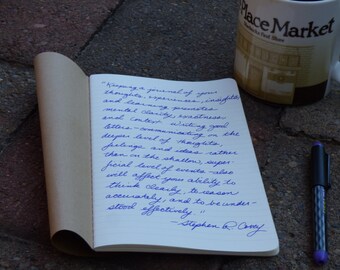 "Keeping a journal of your
thoughts, experiences, insights,
and learning promotes
mental clarity, exactness,
and context. Writing good
letters—communicating on the
deeper level of thoughts,
feelings, and ideas rather
than on the shallow, super-
ficial level of events—also
will affect your ability to
think clearly, to reason
accurately, and to be under-
stood effectively."
—Stephen R. Covey
Place Market